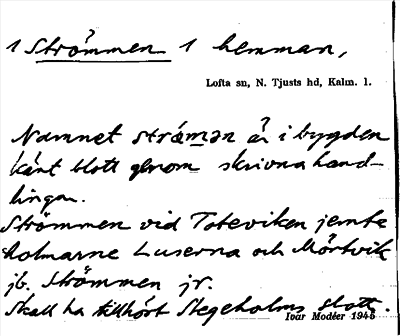 1 Strömmen 1 hemman,
Lofta sn, N. Tjusts hd, Kalm. l.
Namnet strömən är i bygden
känt blott genom skrivna hand-
lingar.
Strömmen vid Toteviken jemte
holmarne Luserna och Mörtvik
jb. Strömmen jr.
Skall ha tillhört Stegeholms slott.
Ivar Modéer 1945